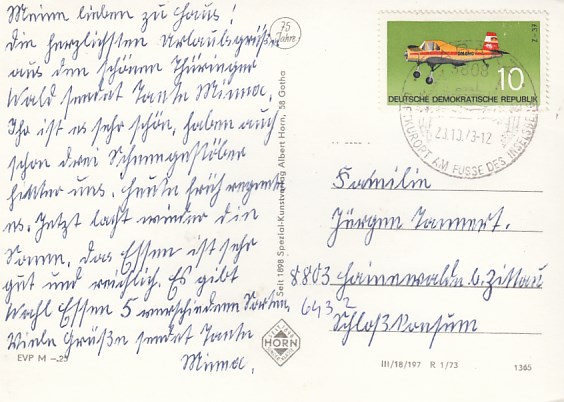 Meine lieben zu Haus!
die herzlichsten Urlaubsgrüße
aus dem schönen Thüringer
Wald sendet Tante Minna.
Ihr ist es sehr schön, haben auch
schon drei Schneegestöber
hinter uns. heute früh regnete
es. Jetzt lacht wieder die
Sonne, das Essen ist sehr
gut und reichlich. Es gibt
Wahl Essen 5 verschiedene Sorten
Viele Grüße sendet Tante
Minna.
EVP M -.25
75
Jahre
Seit 1898 Spezial-Kunstverlag Albert Horn, 58 Gotha
HORN
10
DEUTSCHE DEMOKRATISCHE REPUBLIK
Z-37
5808
23.10.73-12
KURORT AM FUSSE DES INSELSBERGES
Familie
Jürgen Tannert.
8803 Hainewalde b. Zittau
643 2
Schloßkonsum
III/18/197 R 1/73
1365